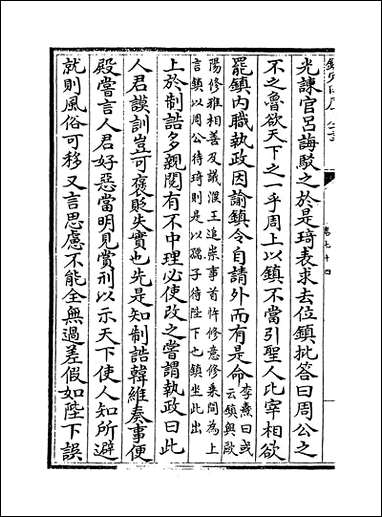 光諫官呂誨駮之於是琦表求去位鎮批答曰周公之
不之魯欲天下之一乎周上以鎮不當引聖人比宰相欲
罷鎮内職執政因諭鎮令自請外而有是命
李燾曰或
云鎮與歐
陽修雅相善及議濮王追崇事首忤修意修乘間為上
言鎮以周公待琦則是以孺子待陛下也鎮坐此出
上於制誥多親閲有不中理必使改之嘗謂執政曰此
人君謨訓豈可褒貶失實也先是知制誥韓維奏事便
殿嘗言人君好惡當明見賞刑以示天下使人知所避
就則風俗可移又言思慮不能全無過差假如陛下誤